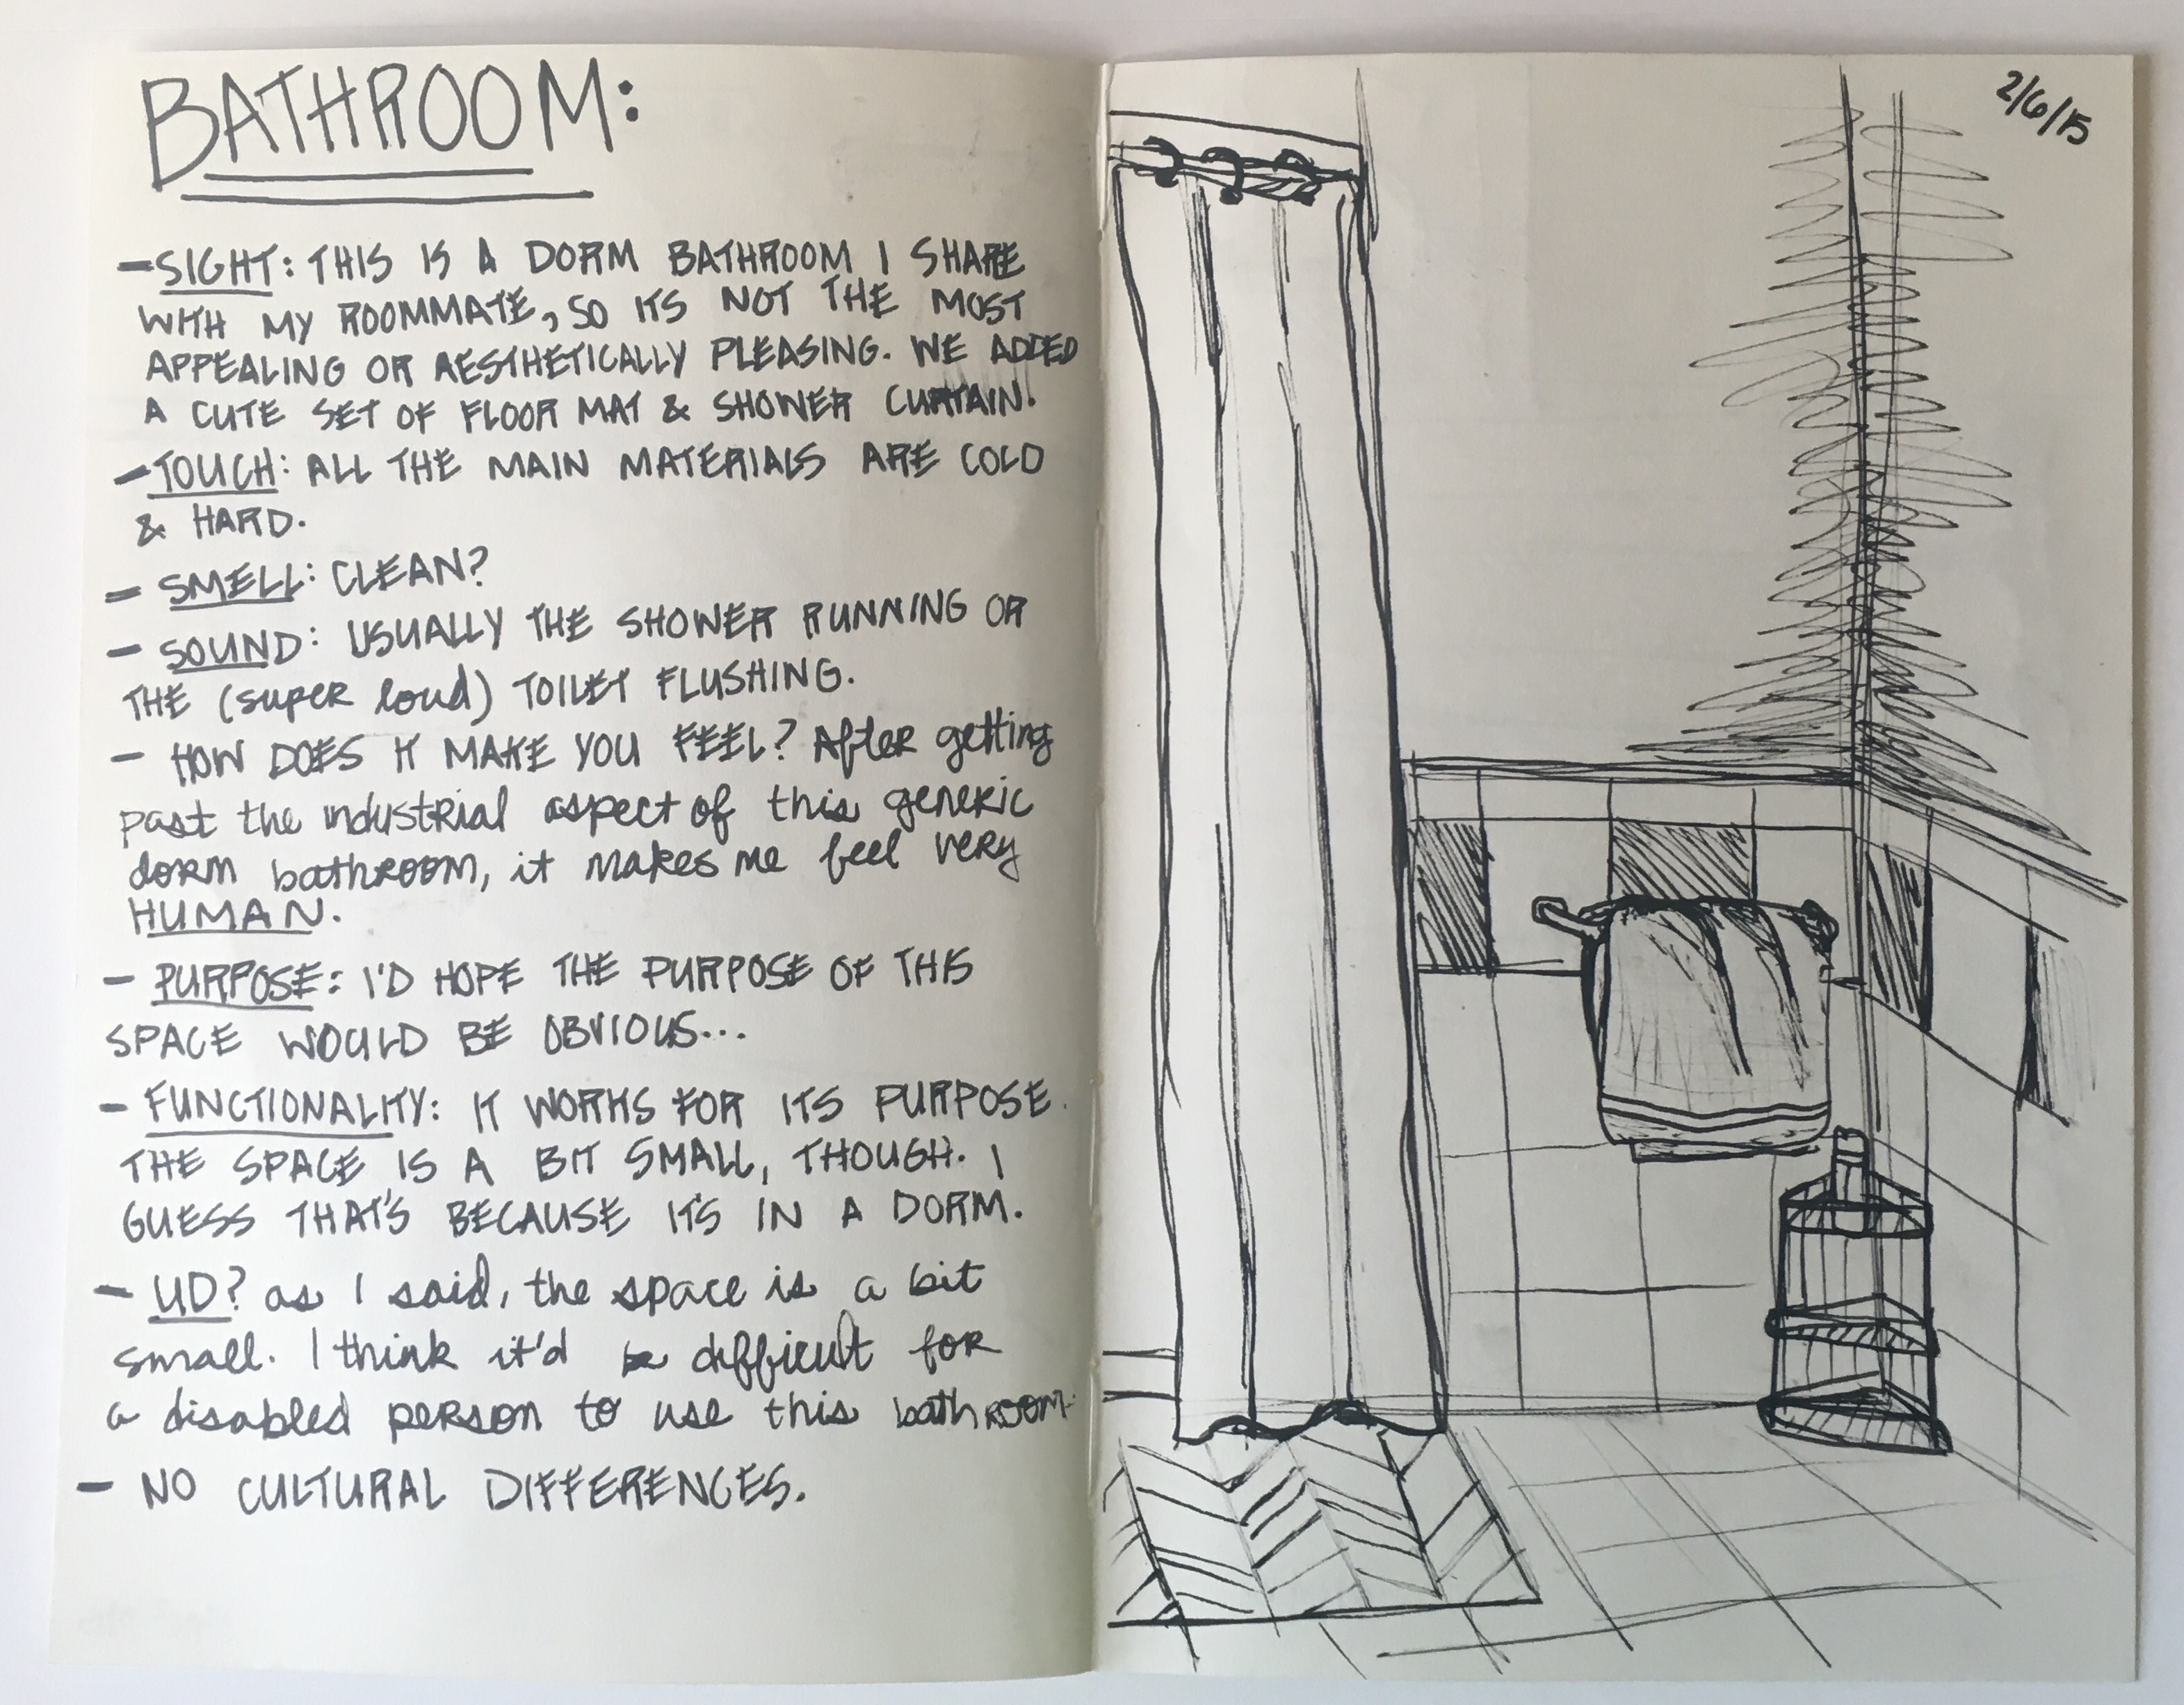 BATHROOM:
- SIGHT: THIS IS A DORM BATHROOM I SHARE
WITH MY ROOMMATE, SO ITS NOT THE MOST
APPEALING OR AESTHETICALLY PLEASING. WE ADDED
A CUTE SET OF FLOOR MAT & SHOWER CURTAIN!
- TOUCH: ALL THE MAIN MATERIALS ARE COLD
& HARD.
- SMELL: CLEAN?
- SOUND: USUALLY THE SHOWER RUNNING OR
THE (super loud) TOILET FLUSHING.
- HOW DOES IT MAKE YOU FEEL? After getting
past the industrial aspect of this generic
dorm bathroom, it makes me feel very
HUMAN.
- PURPOSE: I'D HOPE THE PURPOSE OF THIS
SPACE WOULD BE OBVIOUS...
- FUNCTIONALITY: IT WORKS FOR ITS PURPOSE.
THE SPACE IS A BIT SMALL, THOUGH. I
GUESS THAT'S BECAUSE IT'S IN A DORM.
- UD? as I said, the space is a bit
small. I think it'd be difficult for
a disabled person to use this bathroom.
- NO CULTURAL DIFFERENCES.
2/6/15